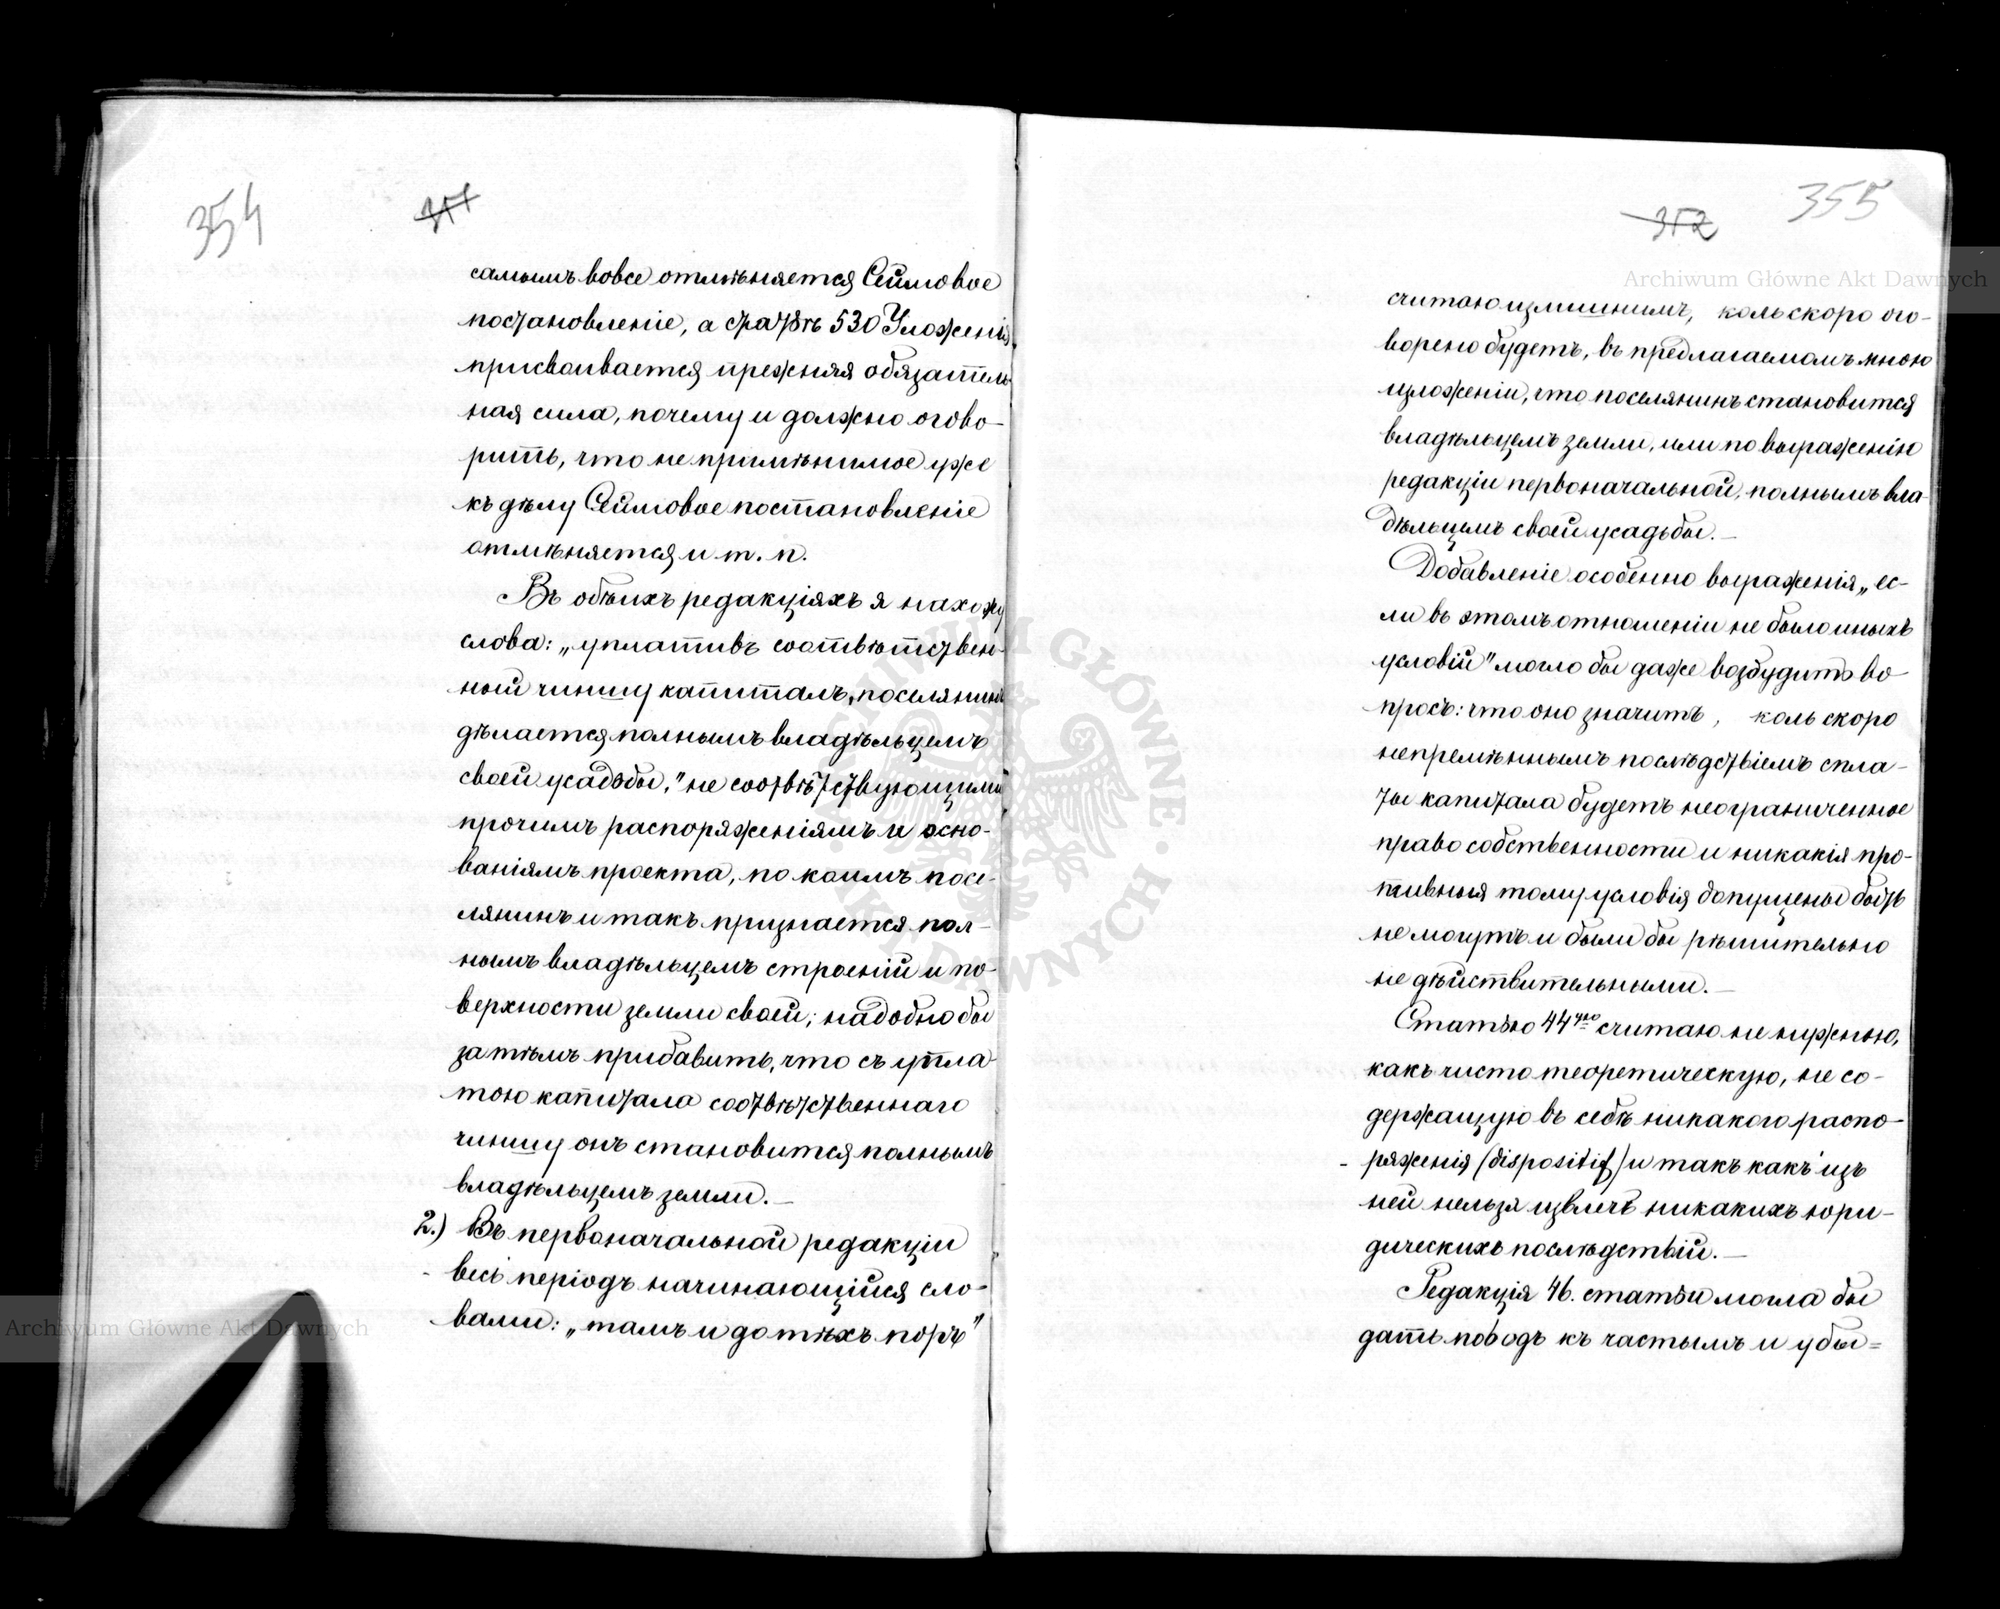 354
351
самымъ вовсе отмѣняется Сеймовое
постановленіе, а статьѣ 530 Уложенія
присвоивается прежняя обязатель
ная сила, почему и должно огово-
рить, что не примѣнимое уже
къ дѣлу Сеймовое постановленіе
отмѣняется и т. п.
Въ обѣихъ редакціяхъ я нахожу
слова: „уплативъ соотвѣтствен-
ный чиншу капиталъ, поселянинъ
дѣлается полнымъ владѣльцемъ
своей усадьбы," не соотвѣтствующими
прочимъ распоряженіямъ и осно-
ваніямъ проекта, по коимъ посе-
лянинъ и такъ признается пол-
нымъ владѣльцемъ строеній и по-
верхности земли своей; надобно бы
за тѣмъ прибавить, что съ упла-
тою капитала соотвѣтственнаго
чиншу онъ становится полнымъ
владѣльцемъ земли. —
2.) Въ первоначальной редакціи
весь періодъ начинающійся сло-
вами: „тамъ и до тѣхъ поръ"
355
352
считаю излишнимъ, коль скоро ого-
ворено будетъ, въ предлагаемомъ мною
изложеніи, что поселянинъ становится
владѣльцемъ земли, или по выраженію
редакціи первоначальной, полнымъ вла-
дѣльцемъ своей усадьбы. —
Добавленіе особенно выраженія „ес-
ли въ этомъ отношеніи не было иныхъ
условій" могло бы даже возбудить во-
просъ: что оно значитъ, коль скоро
непремѣннымъ послѣдствіемъ спла-
ты капитала будетъ неограниченное
право собственности и никакія про-
тивныя тому условія допущены быть
не могутъ и были бы рѣшительно
не дѣйствительными. —
Статью 44ую считаю не нужною,
какъ чисто теоретическую, не со-
держащую въ себѣ никакого распо-
ряженія (dispositif) и такъ какъ изъ
ней нельзя извлечь никакихъ юри-
дическихъ послѣдствій. —
Редакція 46. статьи могла бы
дать поводъ къ частымъ и убы=
Archiwum Główne Akt Dawnych
Archiwum Główne Akt Dawnych
ARCHIWUM GŁÓWNE · AKT DAWNYCH ·